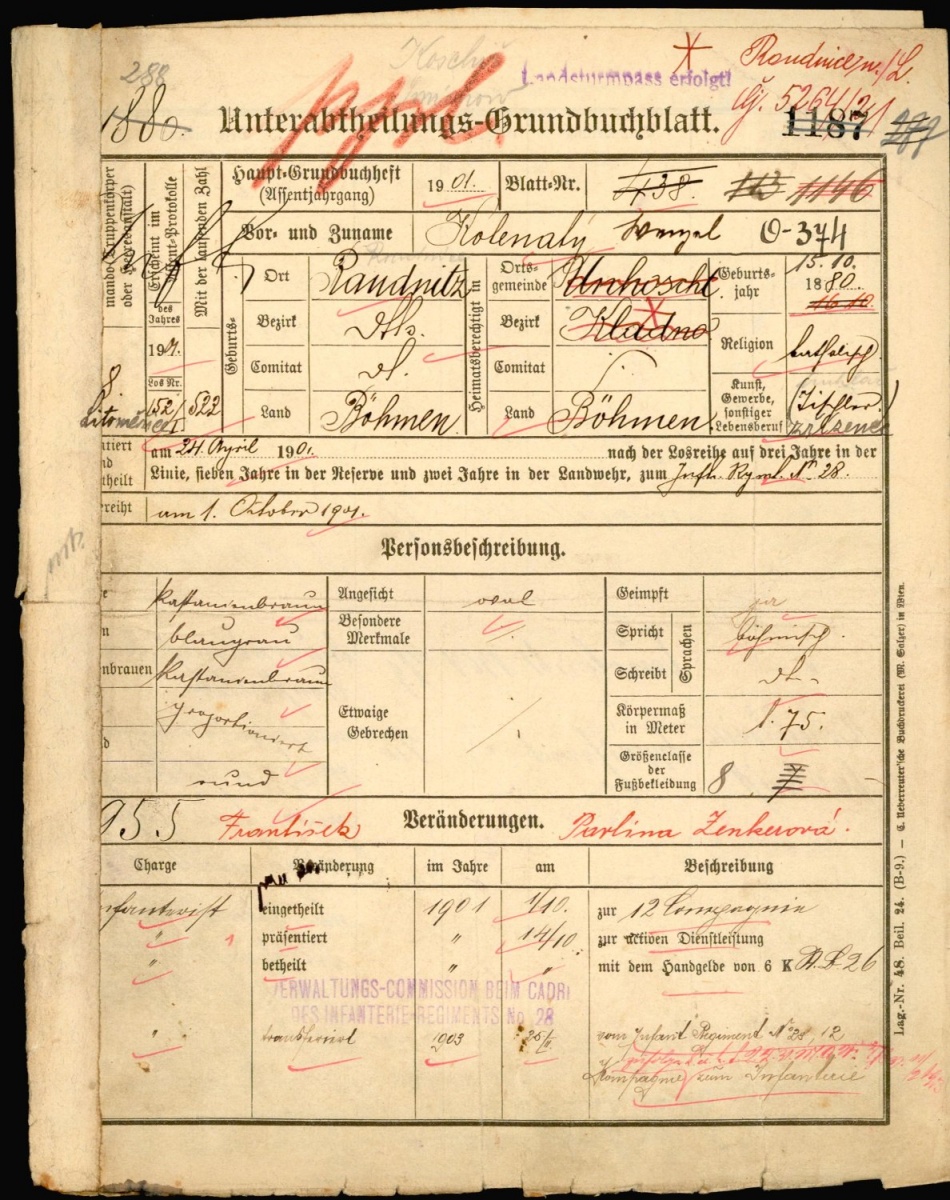 288
Landsturmpass erfolgt!
Roudnice n/L.
čj. 5264/21
1880.
Unterabtheilungs-Grundbuchblatt.
1187
Haupt-Grundbuchheft
(Assentjahrgang)
1901.
Blatt-Nr.
438.
113
1146
Vor- und Zuname
Kolenatý Wenzel
O-374
mando (Truppenkörper
oder Heeresanstalt)
Erscheint im
-Protokolle
des
Jahres
Mit der laufenden Zahl
Los Nr.
152/1
522
8
Litoměřice
Geburts-
Ort
Raudnitz
Bezirk
dto.
Comitat
Land
Böhmen
Heimatsberechtigt in
Orts-
gemeinde
Bezirk
Kladno
Comitat
Land
Böhmen
Geburts-
jahr
15.10.
1880.
16.10.
Religion
katholisch
Kunst,
Gewerbe,
sonstiger
Lebensberuf
(Tischler)
zřízenec
am 24. April 1901. nach der Losreihe auf drei Jahre in der
Linie, sieben Jahre in der Reserve und zwei Jahre in der Landwehr, zum Inft. Rgmt. Nº 28.
ereiht
am 1. Oktober 1901.
Personsbeschreibung.
kastanienbraun
Angesicht
oval
Geimpft
ja
blaugrau
Besondere
Merkmale
Spricht
Sprachen
böhmisch.
nbrauen
kastanienbraun
Schreibt
proportioniert
Etwaige
Gebrechen
Körpermaß
in Meter
1.75.
rund
Größenclasse
der
Fußbekleidung
8
7
955
František
Veränderungen.
Pavlina Zenkerová.
Charge
Veränderung
im Jahre
am
Beschreibung
nfanterist
eingetheilt
1901
1/10.
zur 12 Compagnie
"
präsentiert
"
14/10
zur activen Dienstleistung
"
betheilt
"
"
mit dem Handgelde von 6 K
26
VERWALTUNGS-COMMISSION BEIM CADRE
DES INFANTERIE-REGIMENTS No. 28
"
transferirt
1903
25/II
vom Infant Regiment Nº 28 12
Kompagnie zum Infanterie
Lag.-Nr. 48. Beil. 24. (B-9.) — C. Ueberreuter'sche Buchdruckerei (M. Salzer) in Wien.